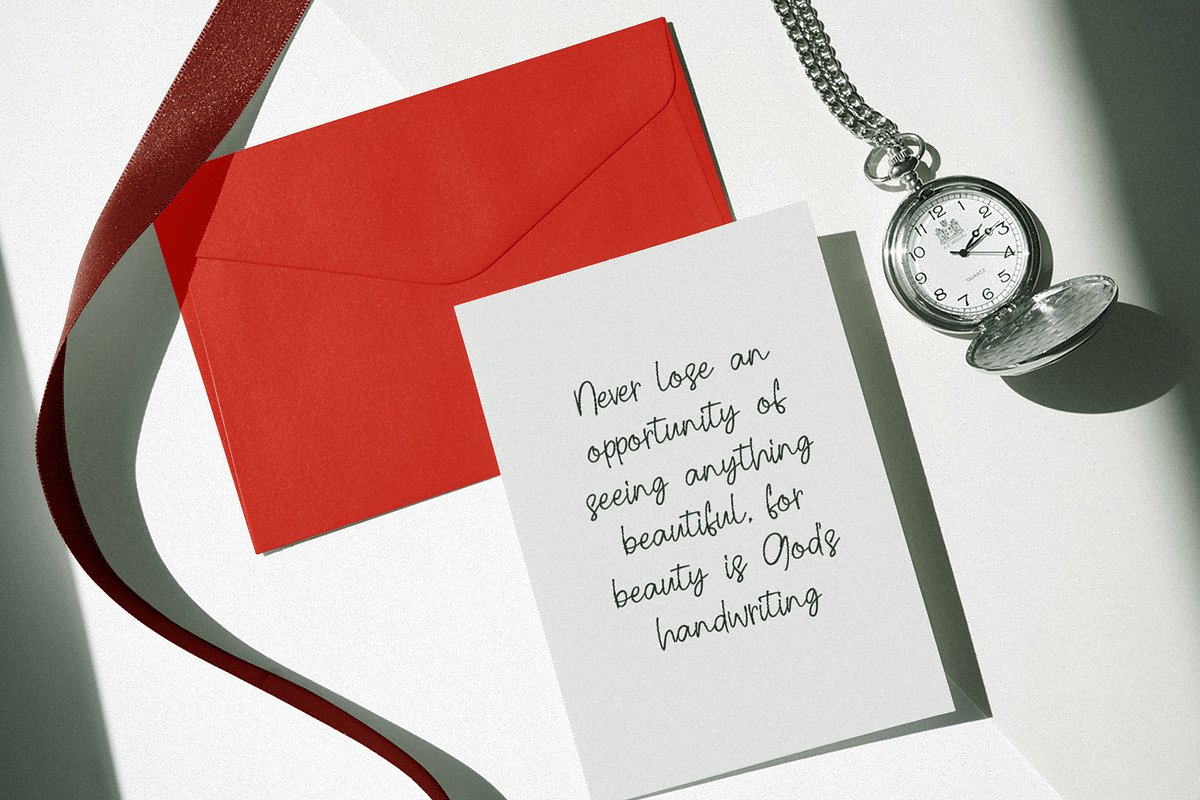 Never lose an
opportunity of
seeing anything
beautiful, for
beauty is God's
handwriting
12
1
2
3
4
5
6
7
8
9
10
11
QUARTZ